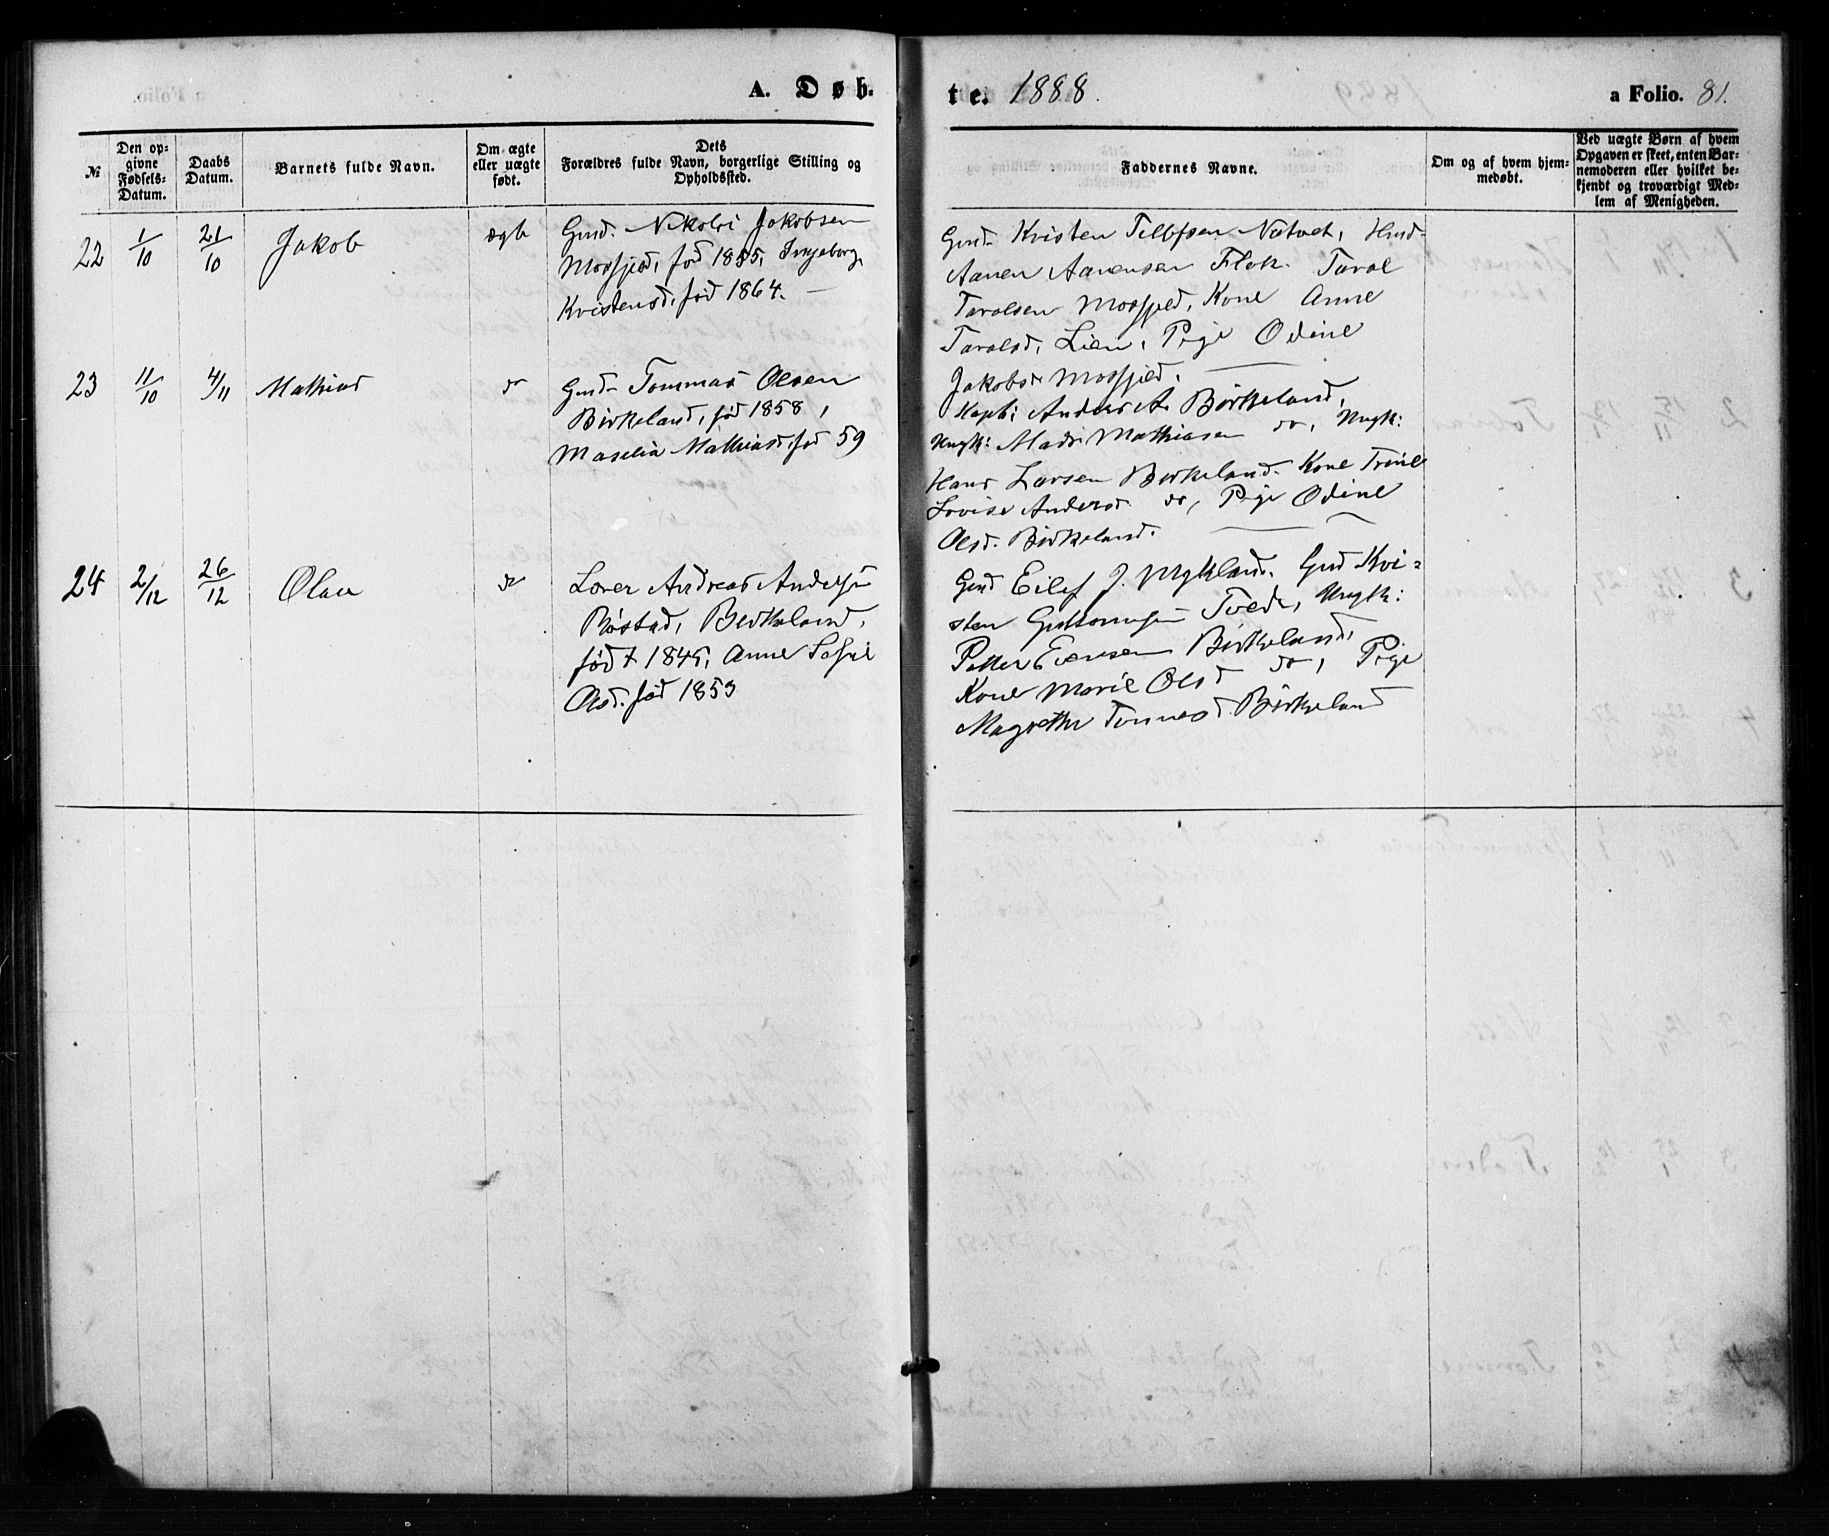 A. Døb-
te. 1888.
a Folio. 81.
№
Den op-
givne
Fødsels-
Datum.
Daabs
Datum.
Barnets fulde Navn.
Om ægte
eller uægte
født.
Dets
Forældres fulde Navn, borgerlige Stilling og
Opholdssted.
Faddernes Navne.
Om og af hvem hjem-
medøbt.
Ved uægte Børn af hvem
Opgaven er skeet, enten Bar-
nemoderen eller hvilket be-
kjendt og troværdigt Med-
lem af Menigheden.
22 1/10 21/10 Jakob ægte
Gmd. Nikolai Jakobsen
Mosfjeld, fød 1855, Ingeborg
Kristensd. fød 1864.
Gmd. Kristen Natvet, Husm-
Aanen Aanensen Flok. Taral
Taralsen Mosfjeld, Kone Anne
Taralsd. Lien, Pige Odine
Jakobsd. Mosfjeld.
23 11/10 4/11 Mathias do
Gmd. Tommas Olsen
Birkeland, fød 1858,
Maselia Mathiasd. fød 59
Kapt: Anders A. Birkeland,
Ungk: Mads Mathiasen do, Ungk:
Hans Larsen Birkeland. Kone Trine
Lovise Andersd. do, Pige Odine
Olsd. Birkeland.
24 2/12 26/12 Olav do
Lærer Andreas Andersen
Røstad, Birkeland,
født 1845, Anne Sofie
Olsd. fød 1853
Gmd Eilef J. Mykland. Gmd Kri-
sten Guttormsen Tvede, Ungk:
Petter Evensen Birkeland,
Kone Marie Olsd do, Pige
Magrethe Tønnesd. Birkeland